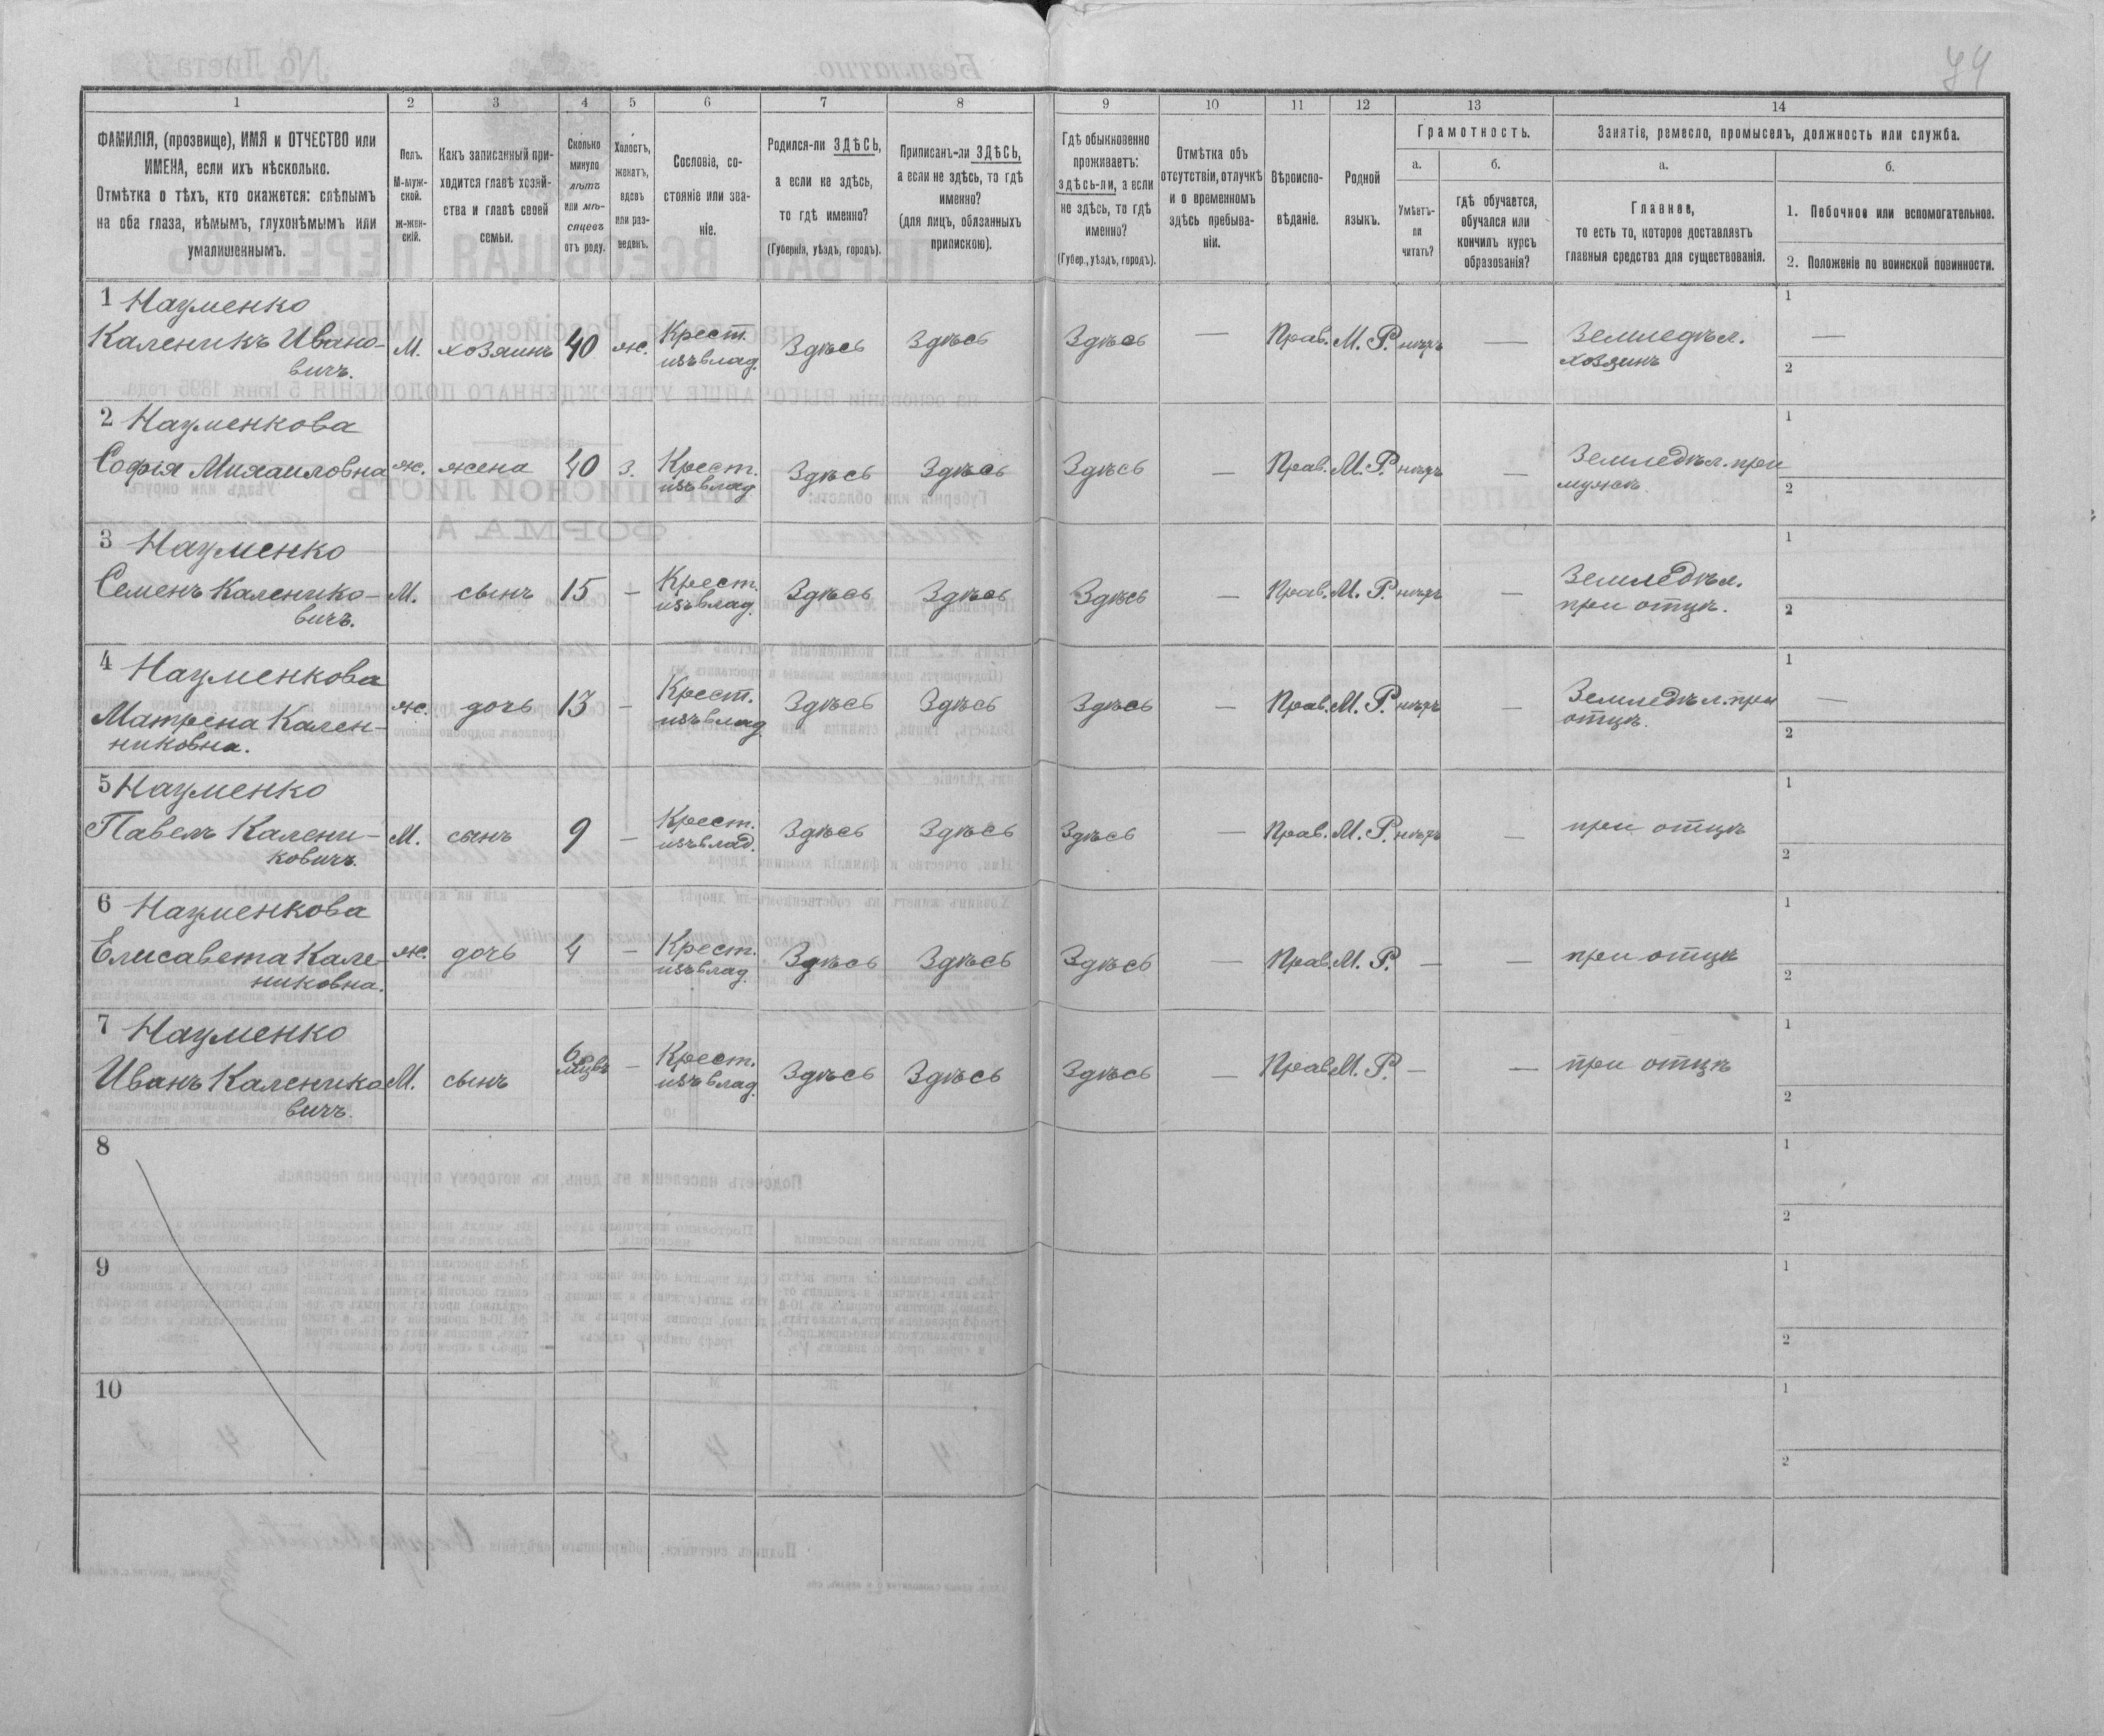 74
1 2 3 4 5 6 7 8 9 10 11 12 13 14
ФАМИЛІЯ, (прозвище), ИМЯ и ОТЧЕСТВО или
ИМЕНА, если ихъ нѣсколько.
Отмѣтка о тѣхъ, кто окажется: слѣпымъ
на оба глаза, нѣмымъ, глухонѣмымъ или
умалишеннымъ.
Полъ.
М-муж-
ской.
ж-жен-
скій.
Какъ записанный при-
ходится главѣ хозяй-
ства и главѣ своей
семьи.
Сколько
минуло
лѣтъ
или мѣ-
сяцевъ
отъ роду.
Холостъ,
женатъ,
вдовъ
или раз-
веденъ.
Сословіе, со-
стояніе или зва-
ніе.
Родился-ли ЗДѢСЬ,
а если не здѣсь,
то гдѣ именно?
(Губернія, уѣздъ, городъ).
Приписанъ-ли ЗДѢСЬ,
а если не здѣсь, то гдѣ
именно?
(для лицъ, обязанныхъ
припискою).
Гдѣ обыкновенно
проживаетъ:
здѣсь-ли, а если
не здѣсь, то гдѣ
именно?
(Губер., уѣздъ, городъ).
Отмѣтка объ
отсутствіи, отлучкѣ
и о временномъ
здѣсь пребыва-
ніи.
Вѣроиспо-
вѣданіе.
Родной
языкъ.
Грамотность.
а.
Умѣетъ-
ли
читать?
б.
гдѣ обучается,
обучался или
кончилъ курсъ
образованія?
Занятіе, ремесло, промыселъ, должность или служба.
а.
Главное,
то есть то, которое доставляетъ
главныя средства для существованія.
б.
1. Побочное или вспомогательное.
2. Положеніе по воинской повинности.
1 Науменко
Каленикъ Ивано-
вичъ.
М. хозяинъ 40 ж. Крест.
изъ влад.
Здѣсь Здѣсь Здѣсь — Прав. М. Р. нѣтъ —
Земледѣл.
хозяинъ
1 —
2
2 Науменкова
Софія Михаиловна
ж. жена 40 з. Крест.
изъ влад.
Здѣсь Здѣсь Здѣсь — Прав. М. Р. нѣтъ —
Земледѣл. при
мужѣ
1
2
3 Науменко
Семенъ Каленико-
вичъ.
М. сынъ 15 — Крест.
изъ влад.
Здѣсь Здѣсь Здѣсь — Прав. М. Р. нѣтъ —
Земледѣл.
при отцѣ.
1
2
4 Науменкова
Матрена Кален-
никовна.
ж. дочь 13 — Крест.
изъ влад.
Здѣсь Здѣсь Здѣсь — Прав. М. Р. нѣтъ —
Земледѣл. при
отцѣ.
1 —
2
5 Науменко
Павелъ Калени-
ковичъ.
М. сынъ 9 — Крест.
изъ влад.
Здѣсь Здѣсь Здѣсь — Прав. М. Р. нѣтъ —
при отцѣ
1
2
6 Науменкова
Елисавета Кале-
никовна.
ж. дочь 4 — Крест.
изъ влад.
Здѣсь Здѣсь Здѣсь — Прав. М. Р. — —
при отцѣ
1
2
7 Науменко
Иванъ Каленико
вичъ.
М. сынъ 6 — Крест.
изъ влад.
Здѣсь Здѣсь Здѣсь — Прав. М. Р. — —
при отцѣ
1
2
8
1
2
9
1
2
10
1
2